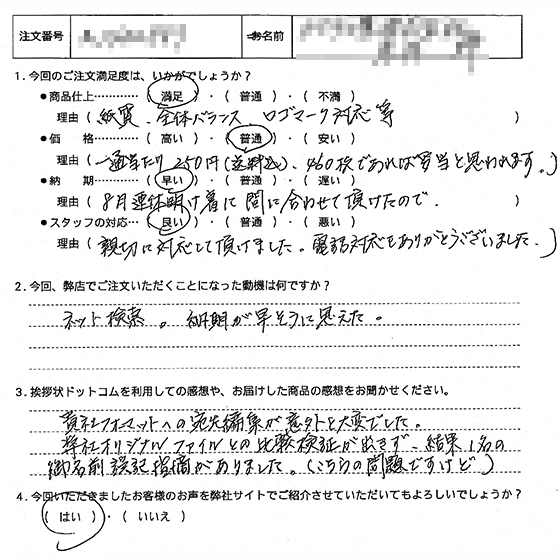 注文番号 お名前
1.今回のご注文満足度は、いかがでしょうか？
●商品仕上…………（ 満足 ）・（ 普通 ）・（ 不満 ）
理由（ 紙質、全体バランス、ロゴマーク対応等 ）
●価　　格…………（ 高い ）・（ 普通 ）・（ 安い ）
理由（一通当たり250円（送料込）、460枚であれば妥当と思われます。）
●納　　期…………（ 早い ）・（ 普通 ）・（ 遅い ）
理由（8月連休明け着に間に合わせて頂けたので。 ）
●スタッフの対応…（ 良い ）・（ 普通 ）・（ 悪い ）
理由（ 親切に対応して頂けました。電話対応もありがとうございました。）
2.今回、弊店でご注文いただくことになった動機は何ですか？
ネット検索。納期が早そうに思えた。
3.挨拶状ドットコムを利用しての感想や、お届けした商品の感想をお聞かせください。
貴社フォーマットへの宛先編集が意外と大変でした。
弊社オリジナルファイルとの比較検証が出来ず、結果1名の
御名前誤記指摘がありました。（こちらの問題ですけど）
4.今回いただきましたお客様のお声を弊社サイトでご紹介させていただいてもよろしいでしょうか？
（ はい ）・（ いいえ ）